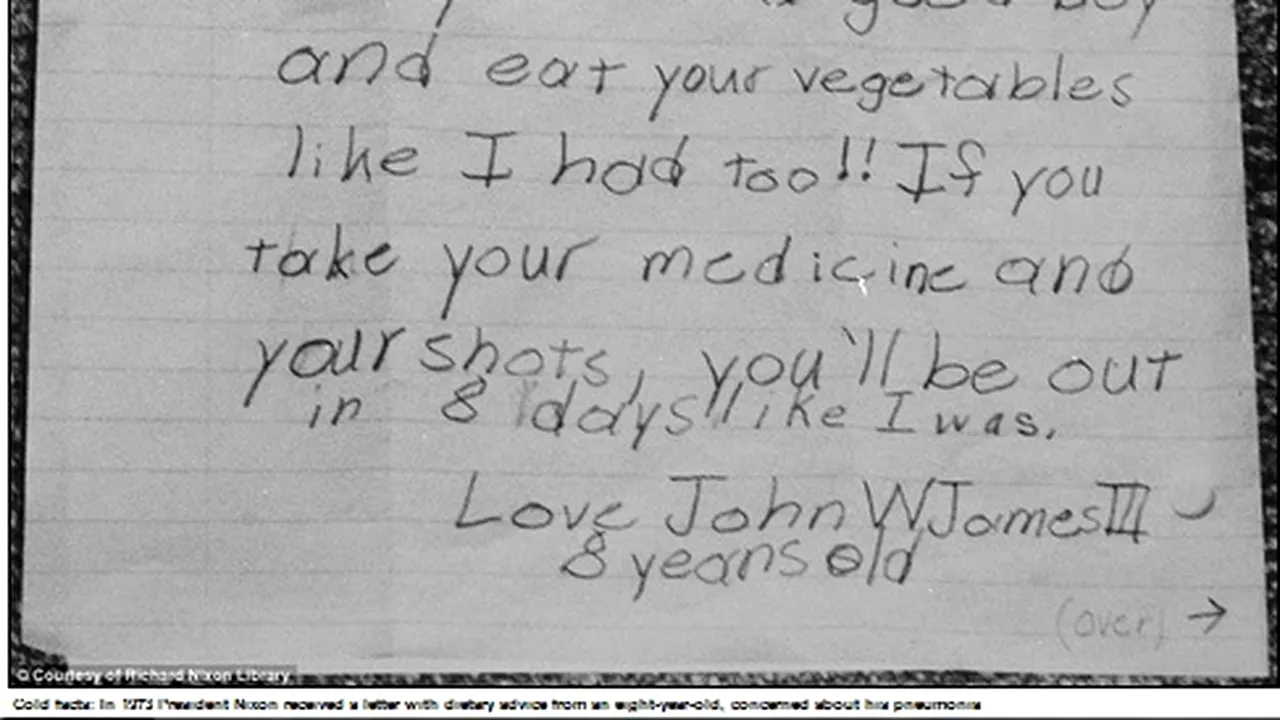 good boy
and eat your vegetables
like I had too!! If you
take your medicine and
your shots, you'll be out
in 8 days like I was.
Love John W James III
8 years old
(over) →
© Courtesy of Richard Nixon Library
Cold facts: In 1973 President Nixon received a letter with dietary advice from an eight-year-old, concerned about his pneumonia